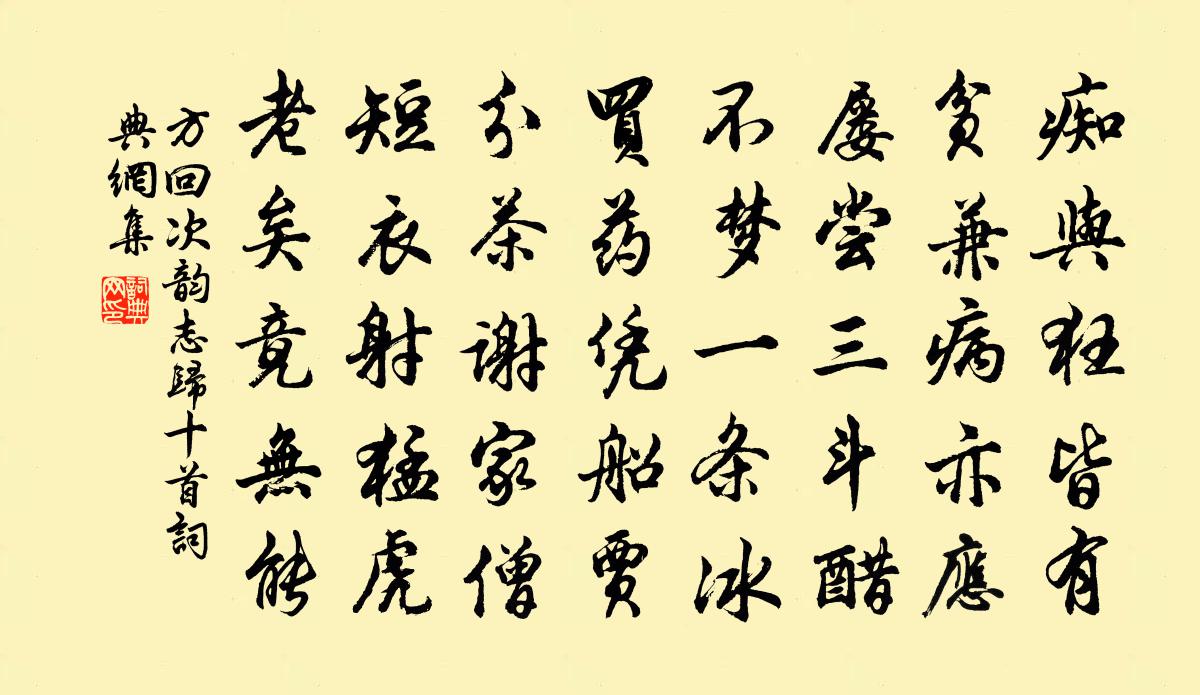 痴與狂皆有
贫兼病亦應
屡尝三斗醋
不梦一条冰
買药凭船賈
分茶谢家僧
短衣射猛虎
老矣竟無能
方回次韵志歸十首詞
典網集
詞典
网印